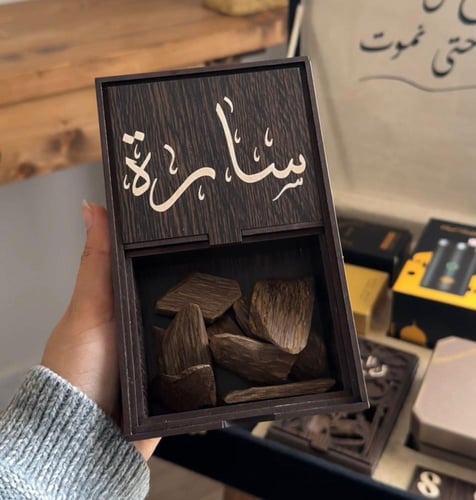 سارة
حتى نموت